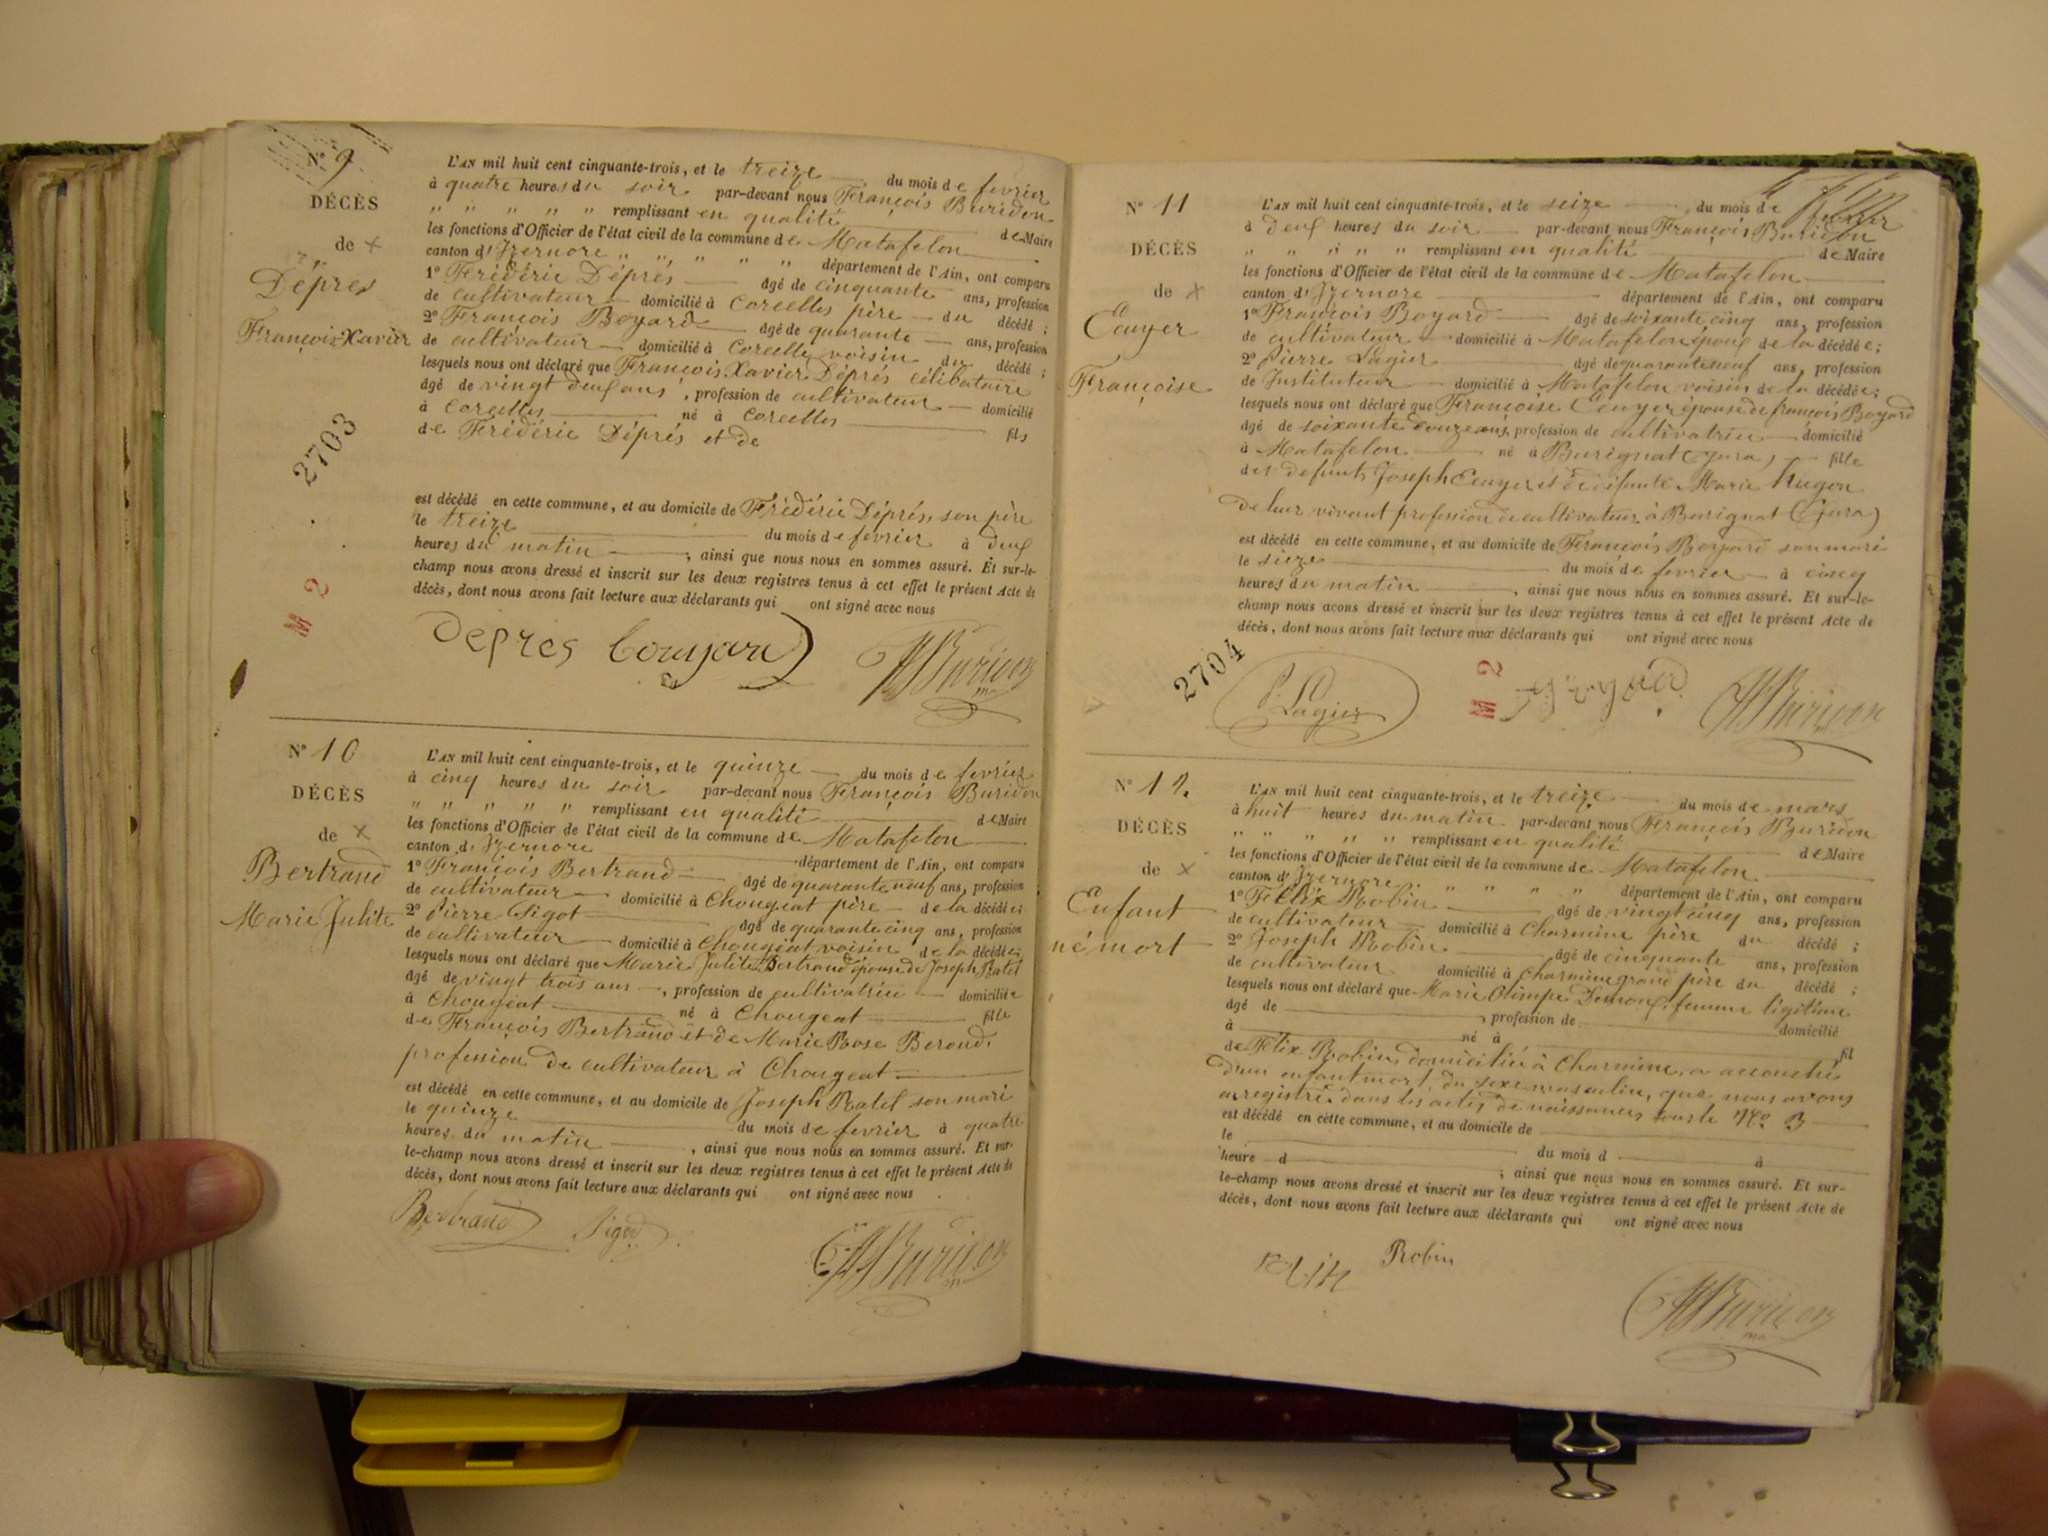 N° 9
DÉCÈS
de
Déprés
François-Xavier
2703
M 2
L'AN mil huit cent cinquante-trois, et le treize du mois de fevrier
à quatre heures du soir par-devant nous François Buridon
" " " " " remplissant en qualité de Maire
les fonctions d'Officier de l'état civil de la commune de Matafelon
canton d'Izernore " " " " " département de l'Ain, ont comparu
1° Frédéric Déprés âgé de cinquante ans, profession
de cultivateur domicilié à Corcelles père du décédé ;
2° François Boyard âgé de quarante ans, profession
de cultivateur domicilié à Corcelles voisin du décédé ;
lesquels nous ont déclaré que François Xavier Déprés célibataire
âgé de vingt deux ans, profession de cultivateur domicilié
à Corcelles né à Corcelles fils
de Frédéric Déprés et de
est décédé en cette commune, et au domicile de Frédéric Déprés, son père
le treize du mois de fevrier à deux
heures du matin, ainsi que nous nous en sommes assuré. Et sur-le-
champ nous avons dressé et inscrit sur les deux registres tenus à cet effet le présent Acte de
décès, dont nous avons fait lecture aux déclarants qui ont signé avec nous
Depres Bouyard Buridon
N° 10
DÉCÈS
de
Bertrand
Marie Julite
L'AN mil huit cent cinquante-trois, et le quinze du mois de fevrier
à cinq heures du soir par-devant nous François Buridon
" " " " " remplissant en qualité de Maire
les fonctions d'Officier de l'état civil de la commune de Matafelon
canton d'Izernore département de l'Ain, ont comparu
1° François Bertrand âgé de quarante neuf ans, profession
de cultivateur domicilié à Chougeat père de la décédée;
2° Pierre Sigot âgé de quarante cinq ans, profession
de cultivateur domicilié à Chougeat voisin de la décédée;
lesquels nous ont déclaré que Marie Julite Bertrand épouse de Joseph Ratel
âgé de vingt trois ans, profession de cultivatrice domiciliée
à Chougeat né à Chougeat fille
de François Bertrand et de Marie Rose Berond
profession de cultivateur à Chougeat
est décédé en cette commune, et au domicile de Joseph Ratel son mari
le quinze du mois de fevrier à quatre
heures du matin, ainsi que nous nous en sommes assuré. Et sur-
le-champ nous avons dressé et inscrit sur les deux registres tenus à cet effet le présent Acte de
décès, dont nous avons fait lecture aux déclarants qui ont signé avec nous
Bertrand Sigot Buridon
N° 11
DÉCÈS
de
Ecuyer
Françoise
2704
M 2
L'AN mil huit cent cinquante-trois, et le seize du mois de fevrier
à deux heures du soir par-devant nous François Buridon
" " " " " remplissant en qualité de Maire
les fonctions d'Officier de l'état civil de la commune de Matafelon
canton d'Izernore département de l'Ain, ont comparu
1° François Boyard âgé de soixante cinq ans, profession
de cultivateur domicilié à Matafelon époux de la décédée;
2° Pierre Lagier âgé de quarante neuf ans, profession
de Instituteur domicilié à Matafelon voisin de la décédée;
lesquels nous ont déclaré que Françoise Ecuyer épouse de françois Boyard
âgé de soixante ans, profession de cultivatrice domicilié
à Matafelon né à Burignat (Jura) fille
des defunts Joseph Ecuyer et de défunte Marie Hugon
de leur vivant profession de cultivateur à Burignat (Jura)
est décédé en cette commune, et au domicile de François Boyard son mari
le sieze du mois de fevrier à cinq
heures du matin, ainsi que nous nous en sommes assuré. Et sur-le-
champ nous avons dressé et inscrit sur les deux registres tenus à cet effet le présent Acte de
décès, dont nous avons fait lecture aux déclarants qui ont signé avec nous
P. Lagier Buridon
N° 12.
DÉCÈS
de
Enfant
né mort
L'AN mil huit cent cinquante-trois, et le treize du mois de mars
à huit heures du matin par-devant nous François Buridon
" " " " " remplissant en qualité de Maire
les fonctions d'Officier de l'état civil de la commune de Matafelon
canton d'Izernore " " " " département de l'Ain, ont comparu
1° Félix Robin âgé de vingt cinq ans, profession
de cultivateur domicilié à Charmine père du décédé ;
2° Joseph Robin âgé de cinquante ans, profession
de cultivateur domicilié à Charmine grand père du décédé ;
lesquels nous ont déclaré que Marie Olimpe femme légitime
âgé de , profession de domicilié
à né à fil
de Félix Robin, domiciliée à Charmine, a accouché
d'un enfant mort, du sexe masculin, que nous avons
enregistré dans les actes de naissances sous le N° 3
est décédé en cette commune, et au domicile de
le du mois d à
heure d ; ainsi que nous nous en sommes assuré. Et sur-
le-champ nous avons dressé et inscrit sur les deux registres tenus à cet effet le présent Acte de
décès, dont nous avons fait lecture aux déclarants qui ont signé avec nous
Robin Buridon